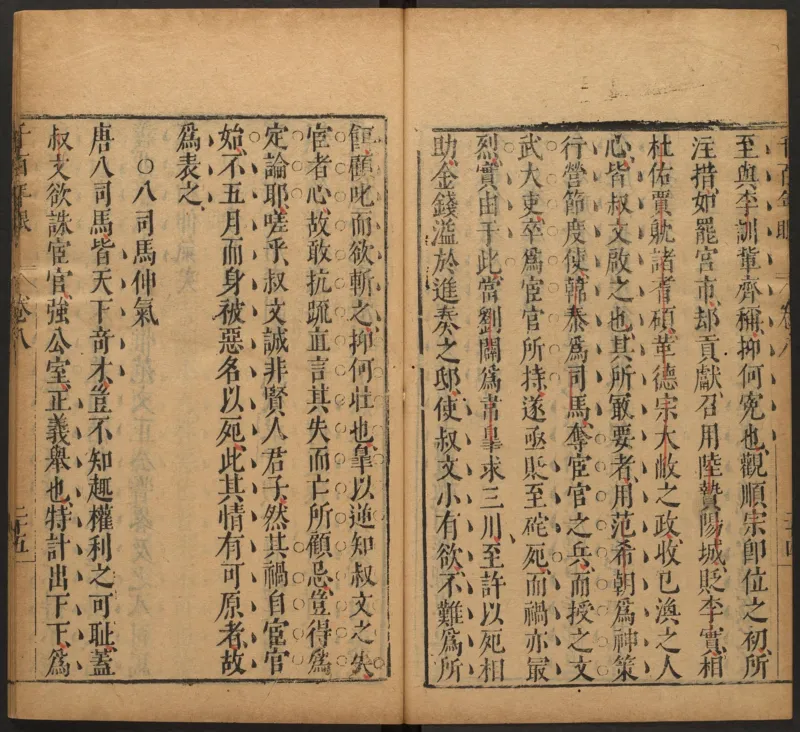 千百年眼 卷八 二十四
至與李訓董齊稱抑何寃也觀順宗卽位之初所
注措如罷宮市却貢獻召用陸贄陽城貶李實相
杜佑賈躭諸耆碩革德宗大敝之政收已渙之人
心皆叔文啟之也其所最要者用范希朝爲神策
行營節度使韓泰爲司馬奪宦官之兵而授之文
武大吏卒爲宦官所持遂亟貶至死而禍亦最
烈實由于此當劉闢爲韋皐求三川至許以死相
助金錢溢於進奏之邸使叔文小有欲不難爲所
餌顧叱而欲斬之抑何壯也皐以逆知叔文之失
宦者心故敢抗䟽直言其失而亡所顧忌豈得爲
定論耶嗟乎叔文誠非賢人君子然其禍自宦官
始不五月而身被惡名以死此其情有可原者故
爲表之
○八司馬伸氣
唐八司馬皆天下奇才豈不知趣權利之可耻蓋
叔文欲誅宦官強公室正義舉也特計出于下爲
千百年眼 卷八 二十五